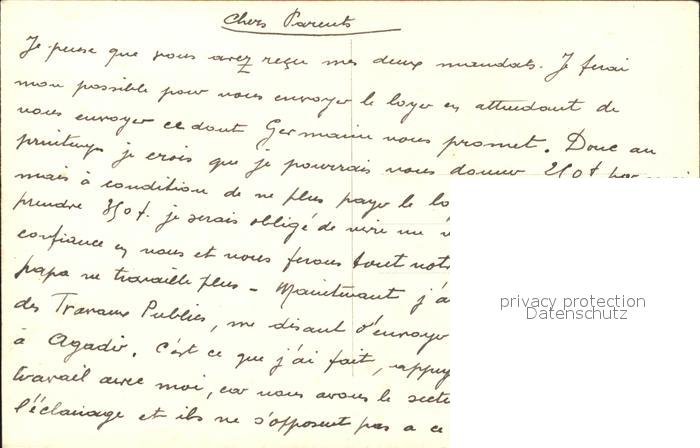 Chers Parents
Je pense que vous avez reçu mes deux mandats. Je ferai
mon possible pour vous envoyer le loyer en attendant de
vous envoyer ce dont Germaine vous promet. Donc au
printemps je crois que je pourrais vous donner 250f par
mais à condition de ne plus payer le lo
prendre 350f. je serais obligé de vivre
confiance en nous et nous ferons tout not
papa ne travaille plus - Maintenant j'a
des Travaux Publics, me disant d'envoyer
à Agadir. C'est ce que j'ai fait, appuy
travail avec moi, car nous avons le secte
l'éclairage et ils ne s'opposent pas a ce
privacy protection
Datenschutz